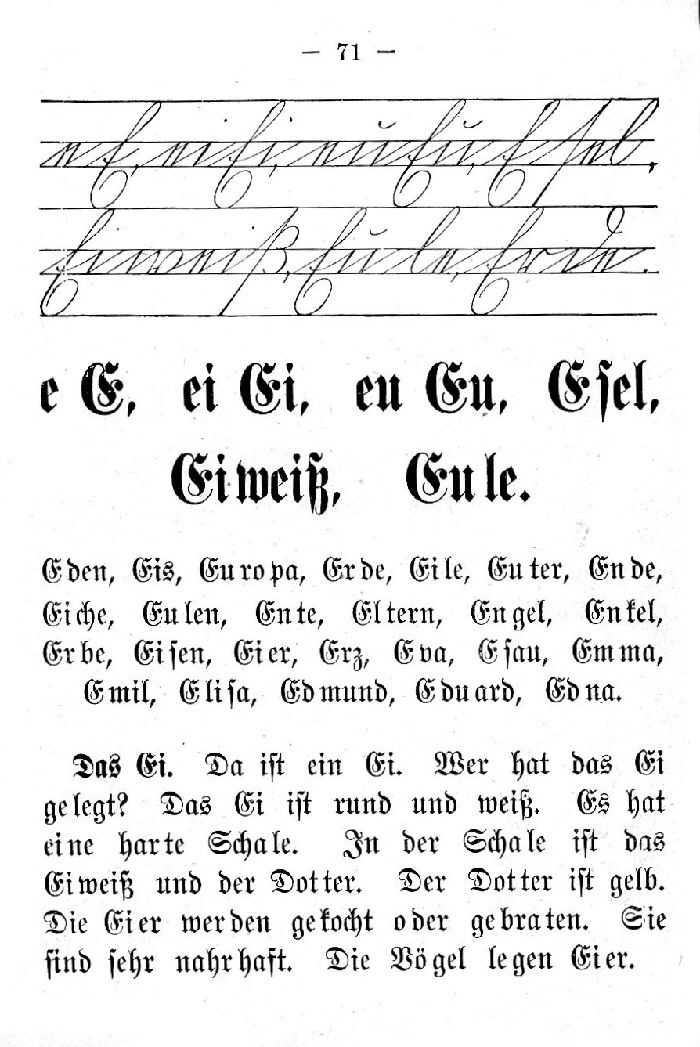 — 71 —
e E, ei Ei, eu Eu, Esel,
Eiweiß, Eule, Erde.
e E, ei Ei, eu Eu, Esel,
Eiweiß, Eule.
Eden, Eis, Europa, Erde, Eile, Euter, Ende,
Eiche, Eulen, Ente, Eltern, Engel, Enkel,
Erbe, Eisen, Eier, Erz, Eva, Esau, Emma,
Emil, Elisa, Edmund, Eduard, Edna.
Das Ei. Da ist ein Ei. Wer hat das Ei
gelegt? Das Ei ist rund und weiß. Es hat
eine harte Schale. In der Schale ist das
Eiweiß und der Dotter. Der Dotter ist gelb.
Die Eier werden gekocht oder gebraten. Sie
sind sehr nahrhaft. Die Vögel legen Eier.